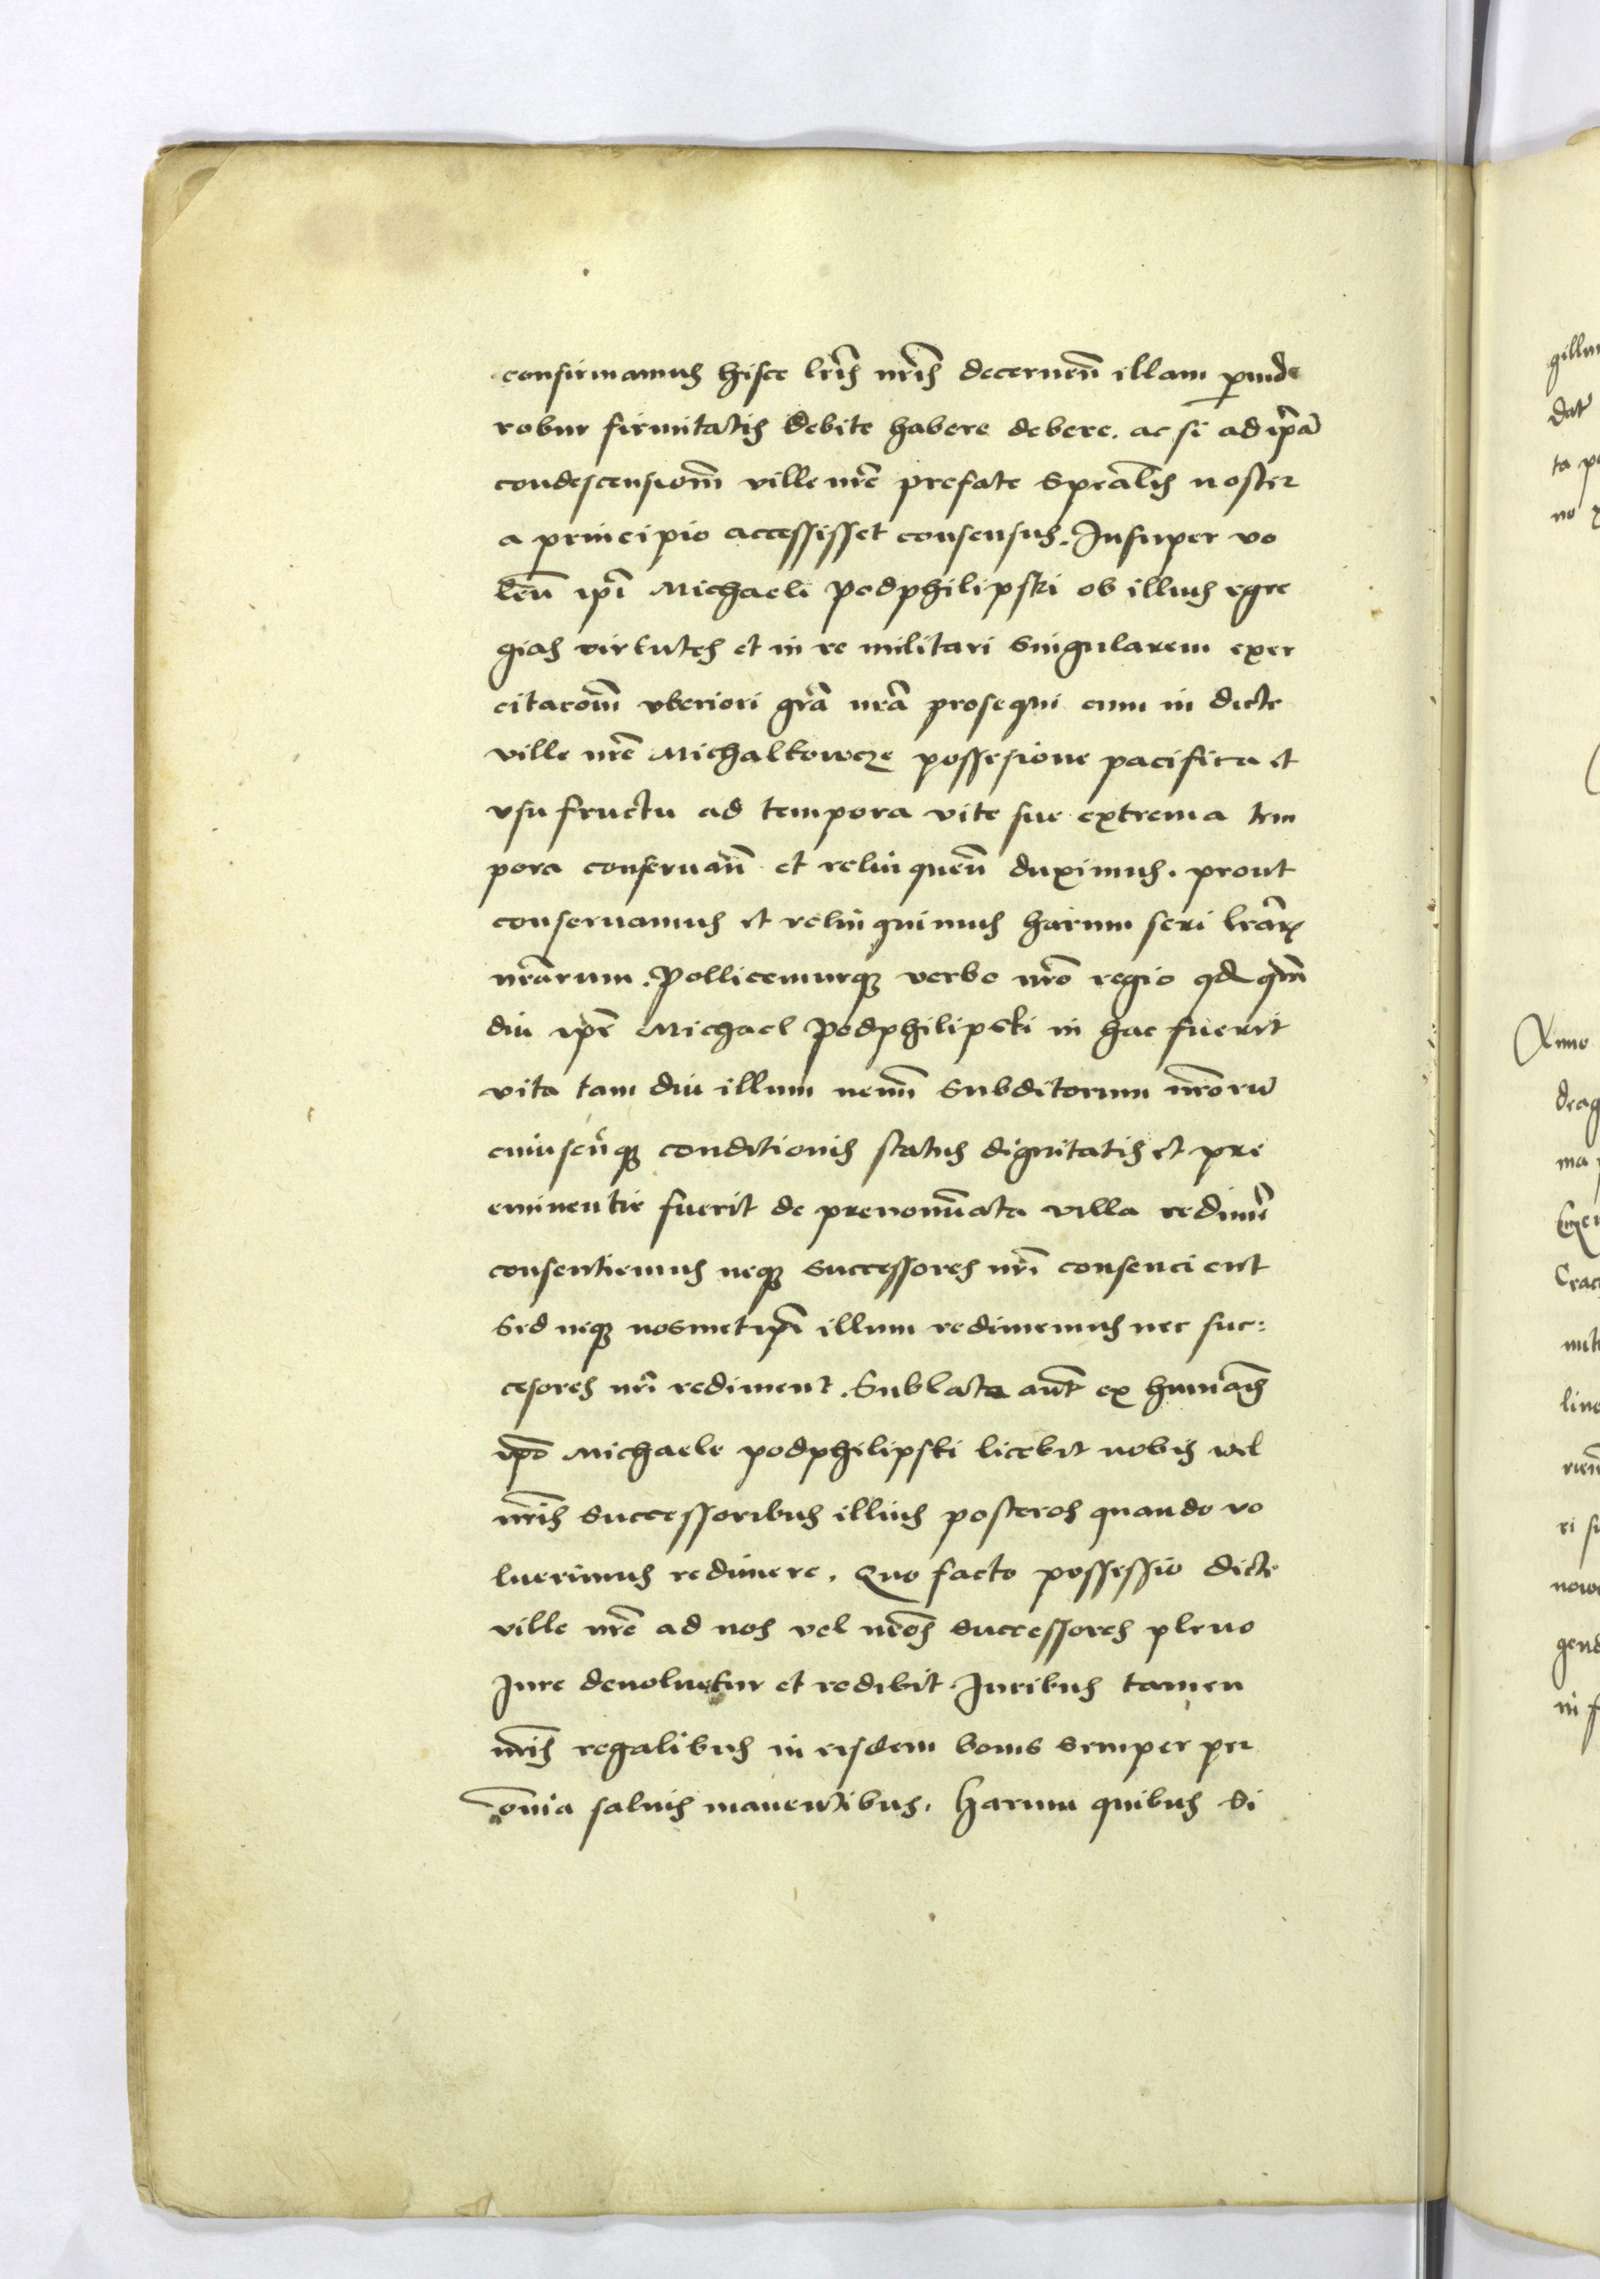 confirmamus hisce lr̃is nr̃is decernen̄ illam ꝑinde
robur firmitatis debite habere debere. ac si ad ip̃ã
condescensionẽm ville nrẽ prefate specialis noster
a principio accessisset consensus. Insuper vo
leñ ip̃i Michaeli Podphilipski ob illius egre
gias virtutes et in re militari singularem exer
citacionẽm vberiori gr̃a nr̃a prosequi eum in dicte
ville nrẽ Michalkowcze possesione pacifica et
vsu fructu ad tempora vite sue extrema tem
pora conseruañ et relinqueñ duximus. prout
conseruamus et relinquimus harum seri lr̃aꝝ
nr̃arum. Pollicemurqꝫ verbo nr̃o regio qđ qm̃
diu ip̃e Michael Podphilipski in hac fuerit
vita tam diu illum nemĩ subditorum nr̃orũ
cuiuscũqꝫ conditionis status dignitatis et pre
eminentie fuerit de prenominata villa redimẽ
consentiemus neqꝫ successores nr̃i consencient
Sed neqꝫ nosmetip̃i illum redimemus nec suc:
cesores nr̃i rediment. Sublato aũt ex humãis
ip̃o Michaele podphilipski licebit nobis vel
nr̃is successoribus illius posteros quando vo
luerimus redimere. Quo facto possessio dicte
ville nrẽ ad nos vel nr̃os successores pleno
Jure deuoluetur et redibit. Juribus tamen
nr̃is regalibus in eisdem bonis semper per
om̃ia saluis manentibus. Harum quibus si
gillu
dat
ta
no
Anno
deag
ma
Crac
lino
ri
gend
in